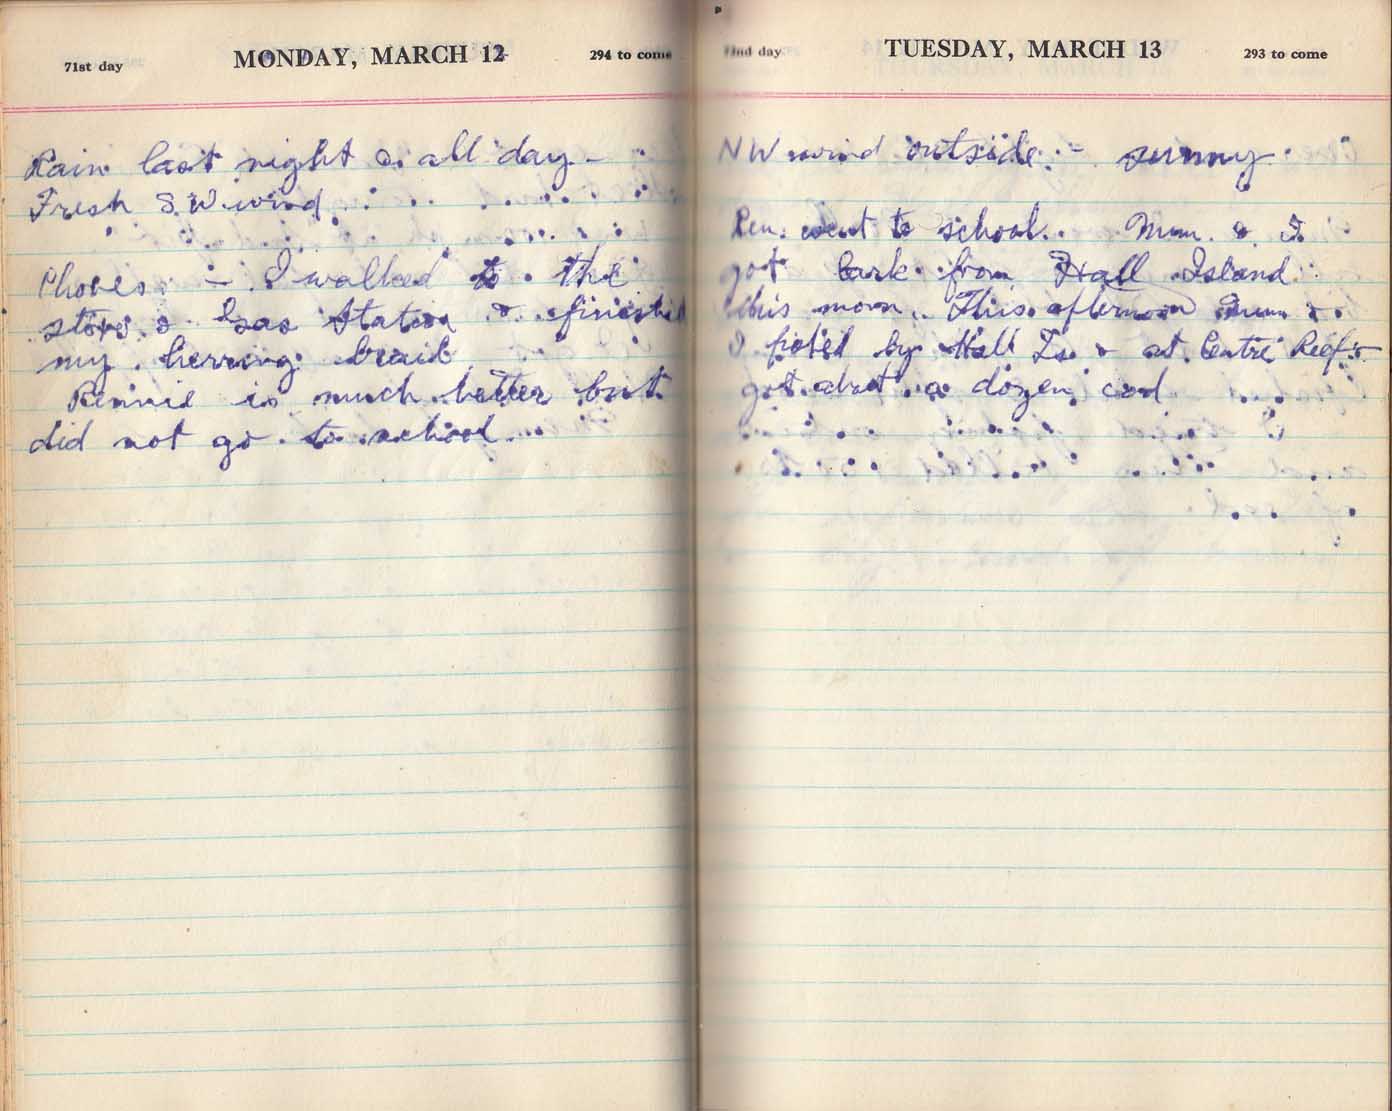 71st day MONDAY, MARCH 12 294 to come
Rain last night & all day -
Fresh S.W. wind
Chores - I walked to the
store & Gas Station & finished
my herring braid
Rennie is much better but
did not go to school
72nd day TUESDAY, MARCH 13 293 to come
NW wind outside - sunny
Ren. went to school. Mum & I
got bark from Hall Island
this morn. This afternoon Mum &
I fished by Hall Is & at Centre Reef &
got about a dozen cod